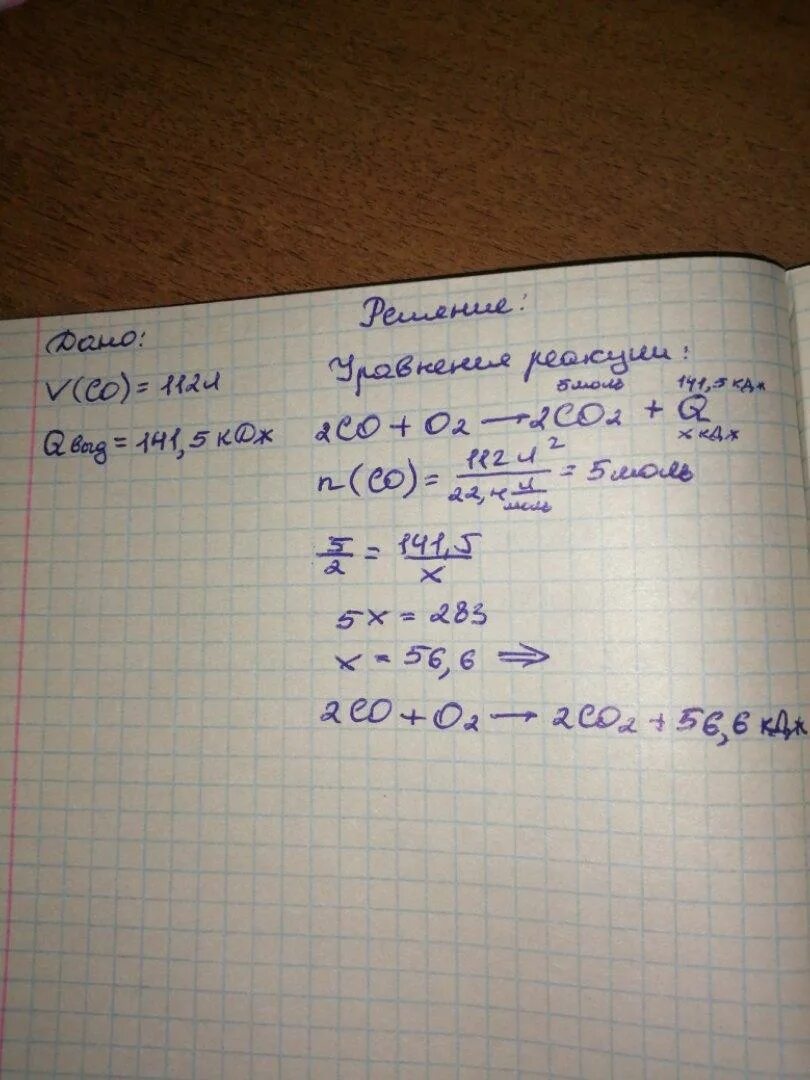 Дано:
V(CO) = 112л
Qвыд = 141,5 кДж
Решение:
Уравнения реакции:
5моль 141,5 кДж
2CO + O₂ → 2CO₂ + Q
x кДж
n(CO) = 112л / 22,4 л/моль = 5моль
5/2 = 141,5/x
5x = 283
x = 56,6 ⇒
2CO + O₂ → 2CO₂ + 56,6 кДж